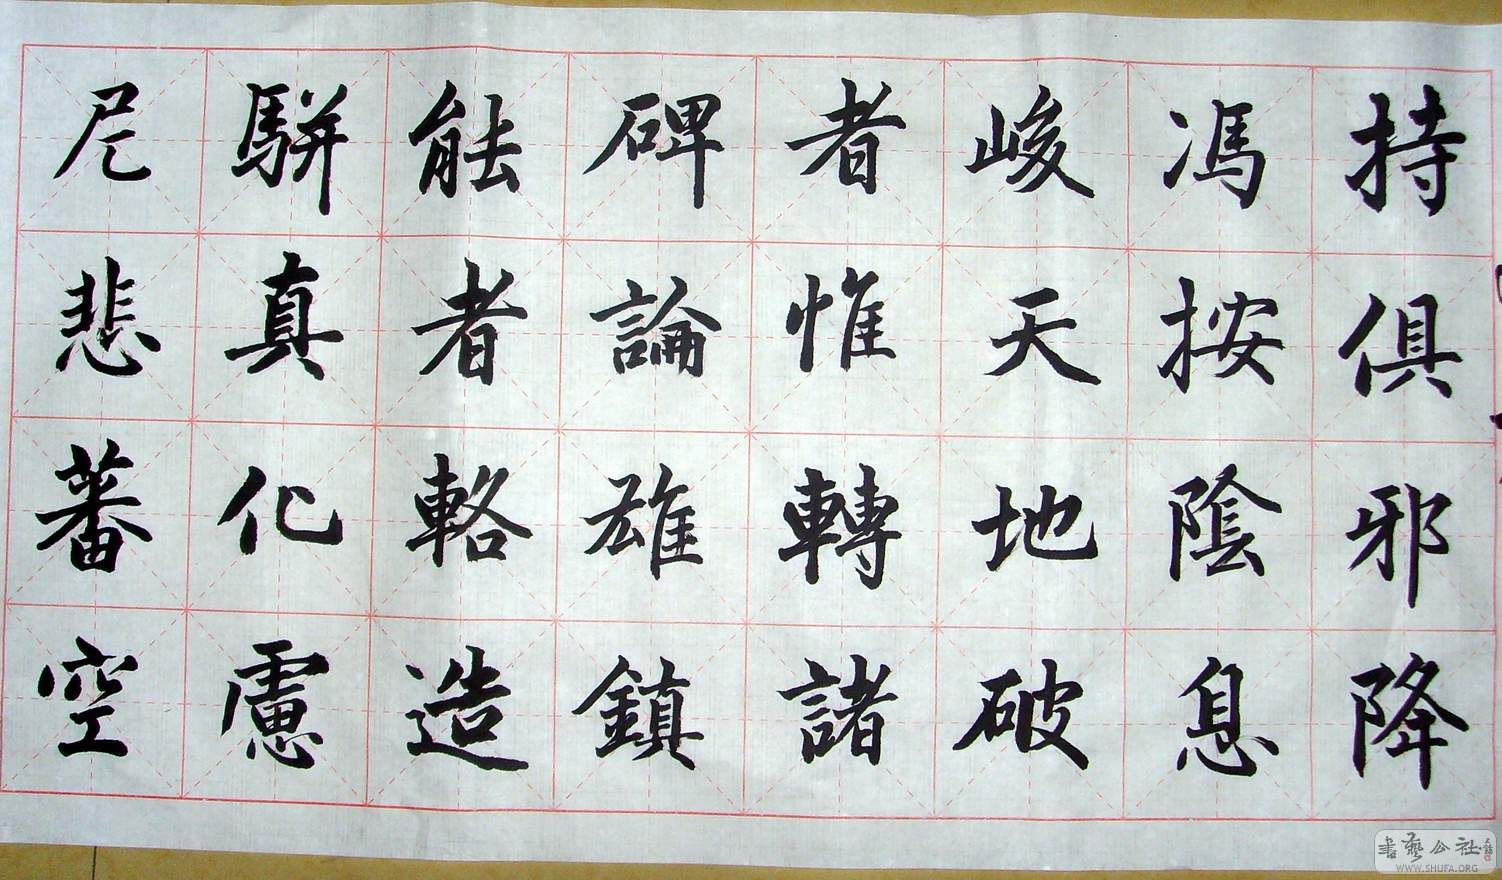 持俱邪降
馮按陰息
峻天地破
者惟轉諸
碑論雄鎮
能者輅造
駢真化慮
尼悲蕃空
書藝公社
WWW.SHUFA.ORG